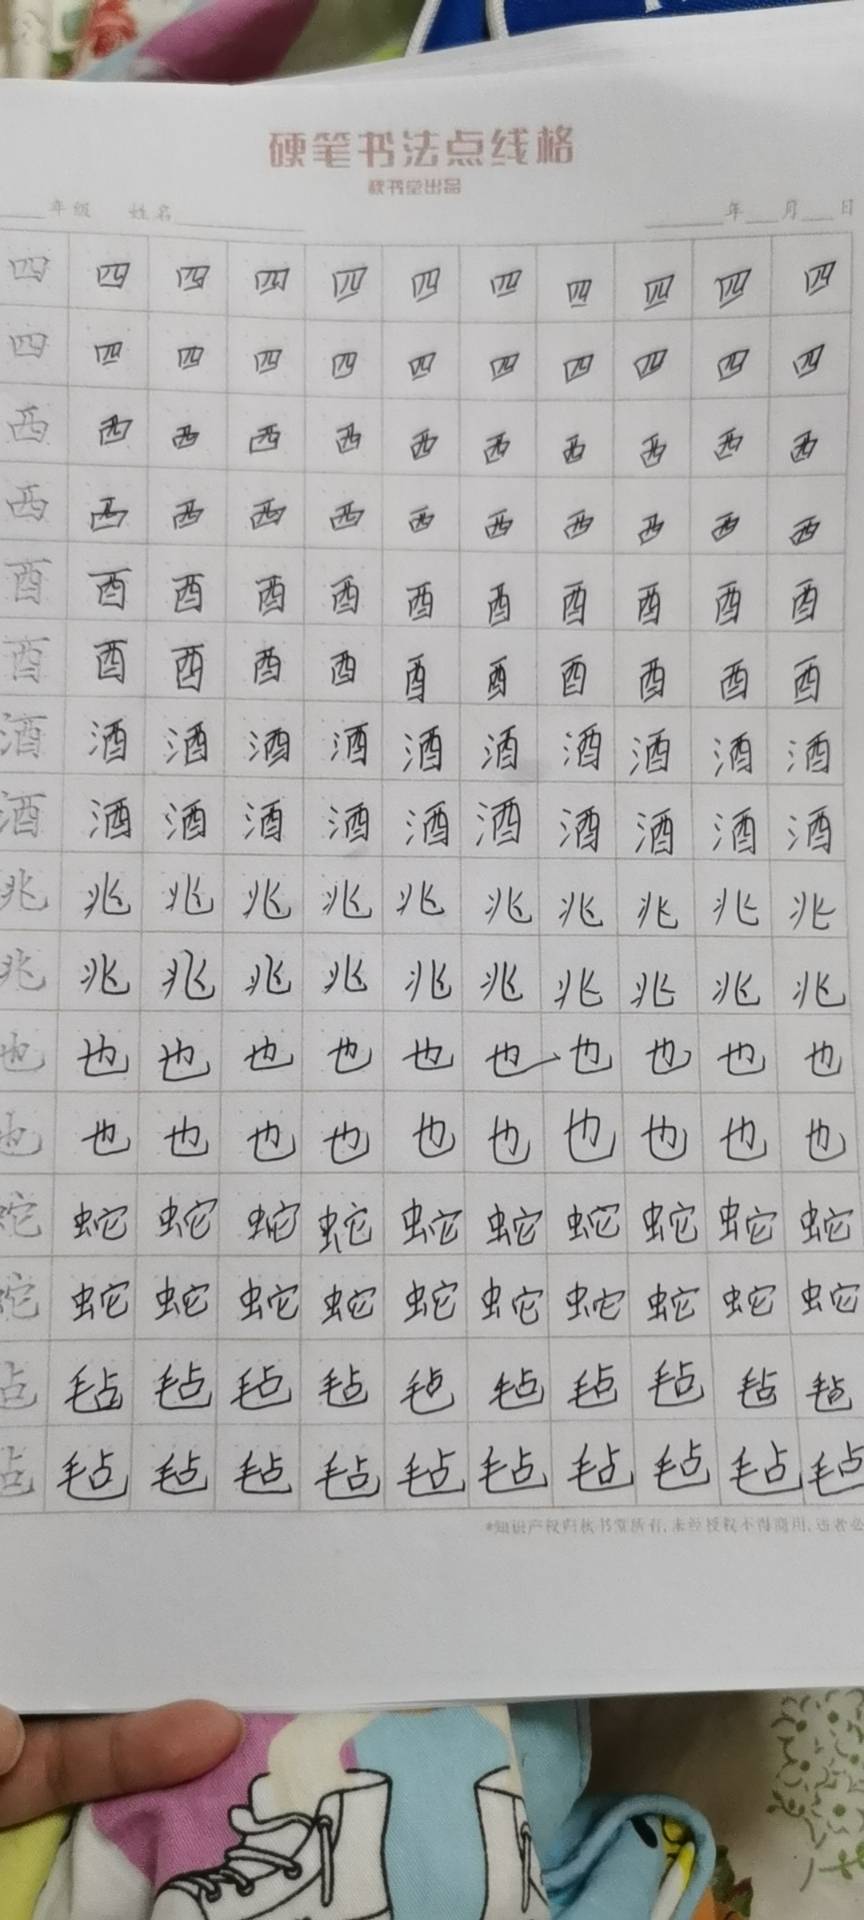 硬笔书法点线格
秋书堂出品
年级 姓名 年 月 日
四 四 四 四 四 四 四 四 四 四 四
四 四 四 四 四 四 四 四 四 四 四
西 西 西 西 西 西 西 西 西 西 西
西 西 西 西 西 西 西 西 西 西 西
酉 酉 酉 酉 酉 酉 酉 酉 酉 酉 酉
酉 酉 酉 酉 酉 酉 酉 酉 酉 酉 酉
酒 酒 酒 酒 酒 酒 酒 酒 酒 酒 酒
酒 酒 酒 酒 酒 酒 酒 酒 酒 酒 酒
兆 兆 兆 兆 兆 兆 兆 兆 兆 兆 兆
兆 兆 兆 兆 兆 兆 兆 兆 兆 兆 兆
也 也 也 也 也 也 也 也 也 也 也
也 也 也 也 也 也 也 也 也 也 也
蛇 蛇 蛇 蛇 蛇 蛇 蛇 蛇 蛇 蛇 蛇
蛇 蛇 蛇 蛇 蛇 蛇 蛇 蛇 蛇 蛇 蛇
毡 毡 毡 毡 毡 毡 毡 毡 毡 毡 毡
毡 毡 毡 毡 毡 毡 毡 毡 毡 毡 毡
*知识产权归秋书堂所有,未经授权不得商用,违者必